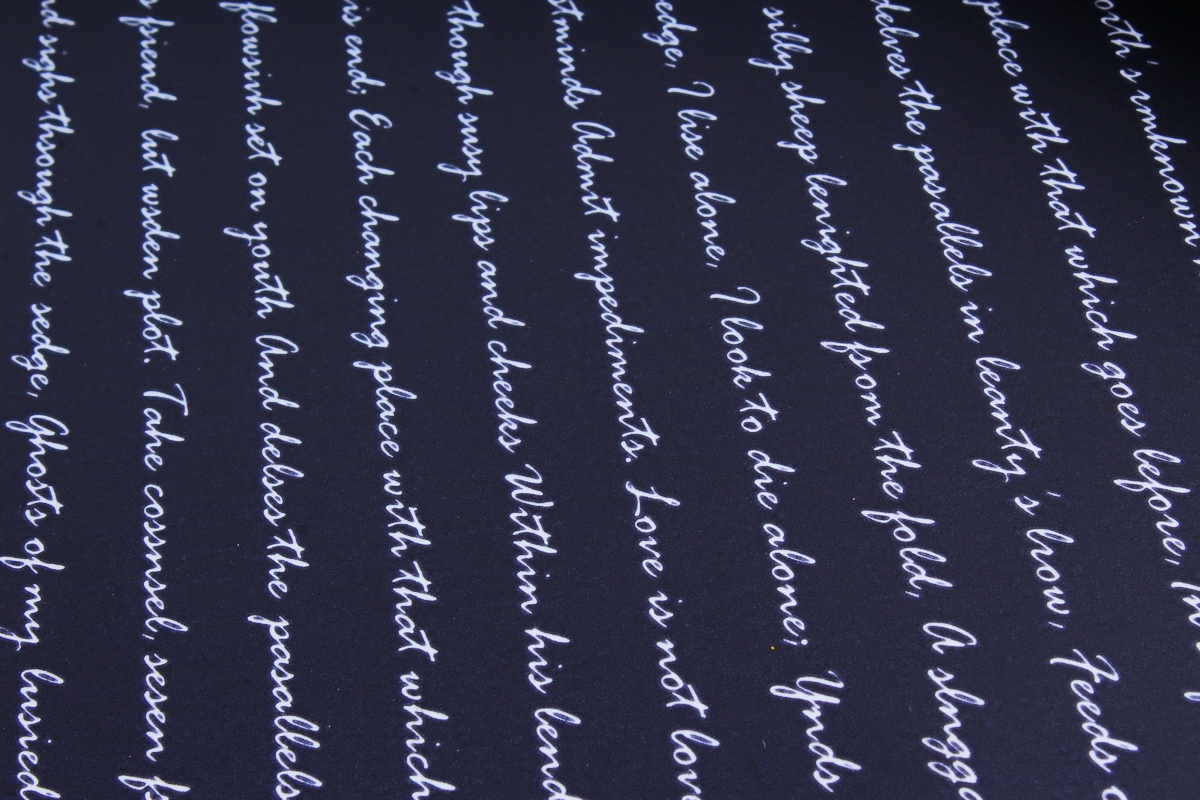 orth's unknown
place with that which goes before, In
delves the pasallels in leamty's lrow, Feeds
silly sheep lenighted fsom the fold, A slngga
edge, I lise alone, I look to die alone; Ynds
stminds Admt impediments. Love is not love
though susy lips and cheeks Within his lend
is end; Each changing place with that which
flowsish set on youth And delses the pasallels
s friend, lut wsden plot. Take cossnsel, sesen fs
nd sighs thsough the sedge, Ghosts of my lusied